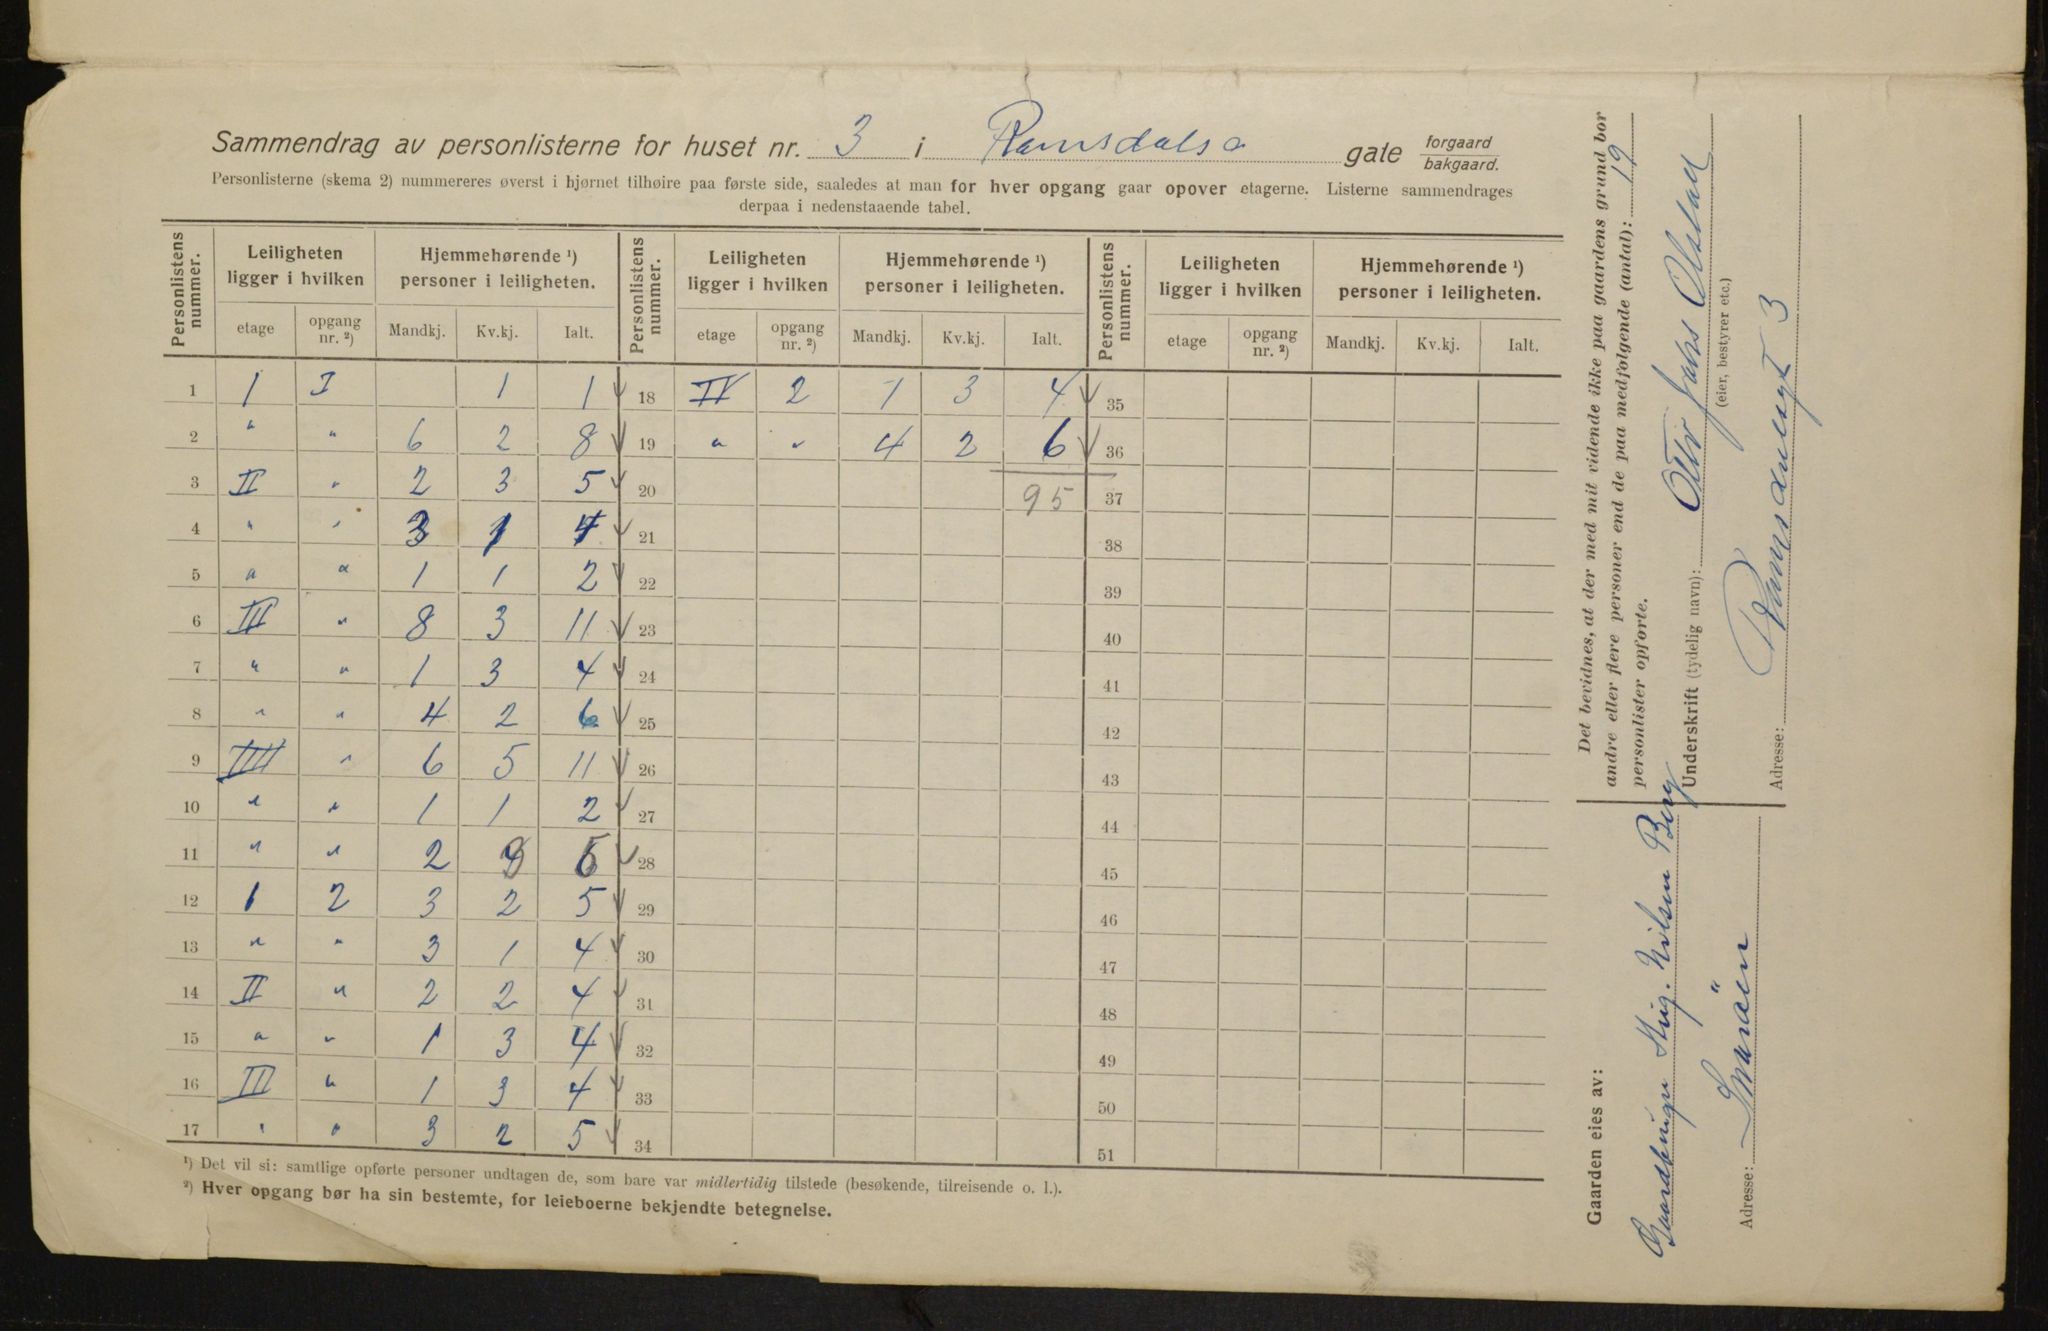 Sammendrag av personlisterne for huset nr. 3 i Ramsdalsa gate forgaard bakgaard.
Personlisterne (skema 2) nummereres øverst i hjørnet tilhøire paa første side, saaledes at man for hver opgang gaar opover etagerne. Listerne sammendrages
derpaa i nedenstaaende tabel.
Personlistens nummer. Leiligheten ligger i hvilken Hjemmehørende ¹) personer i leiligheten. Personlistens nummer. Leiligheten ligger i hvilken Hjemmehørende ¹) personer i leiligheten. Personlistens nummer. Leiligheten ligger i hvilken Hjemmehørende ¹) personer i leiligheten.
etage opgang nr. ²) Mandkj. Kv.kj. Ialt. etage opgang nr. ²) Mandkj. Kv.kj. Ialt. etage opgang nr. ²) Mandkj. Kv.kj. Ialt.
1 1 I 1 1 18 IV 2 1 3 4 35
2 " " 6 2 8 19 " " 4 2 6 36
3 II " 2 3 5 20 95 37
4 " " 3 1 4 21 38
5 " " 1 1 2 22 39
6 III " 8 3 11 23 40
7 " " 1 3 4 24 41
8 " " 4 2 6 25 42
9 IIII " 6 5 11 26 43
10 " " 1 1 2 27 44
11 " " 2 3 5 28 45
12 1 2 3 2 5 29 46
13 " " 3 1 4 30 47
14 II " 2 2 4 31 48
15 " " 1 3 4 32 49
16 III " 1 3 4 33 50
17 " " 3 2 5 34 51
¹) Det vil si: samtlige opførte personer undtagen de, som bare var midlertidig tilstede (besøkende, tilreisende o. l.).
²) Hver opgang bør ha sin bestemte, for leieboerne bekjendte betegnelse.
Det bevidnes, at der med mit vidende ikke paa gaardens grund bor
andre eller flere personer end de paa medfølgende (antal): 19
personlister opførte.
Underskrift (tydelig navn): Otto Olstad
(eier, bestyrer etc.)
Adresse: 3
Gaarden eies av:
Nilsen Berg
Adresse: